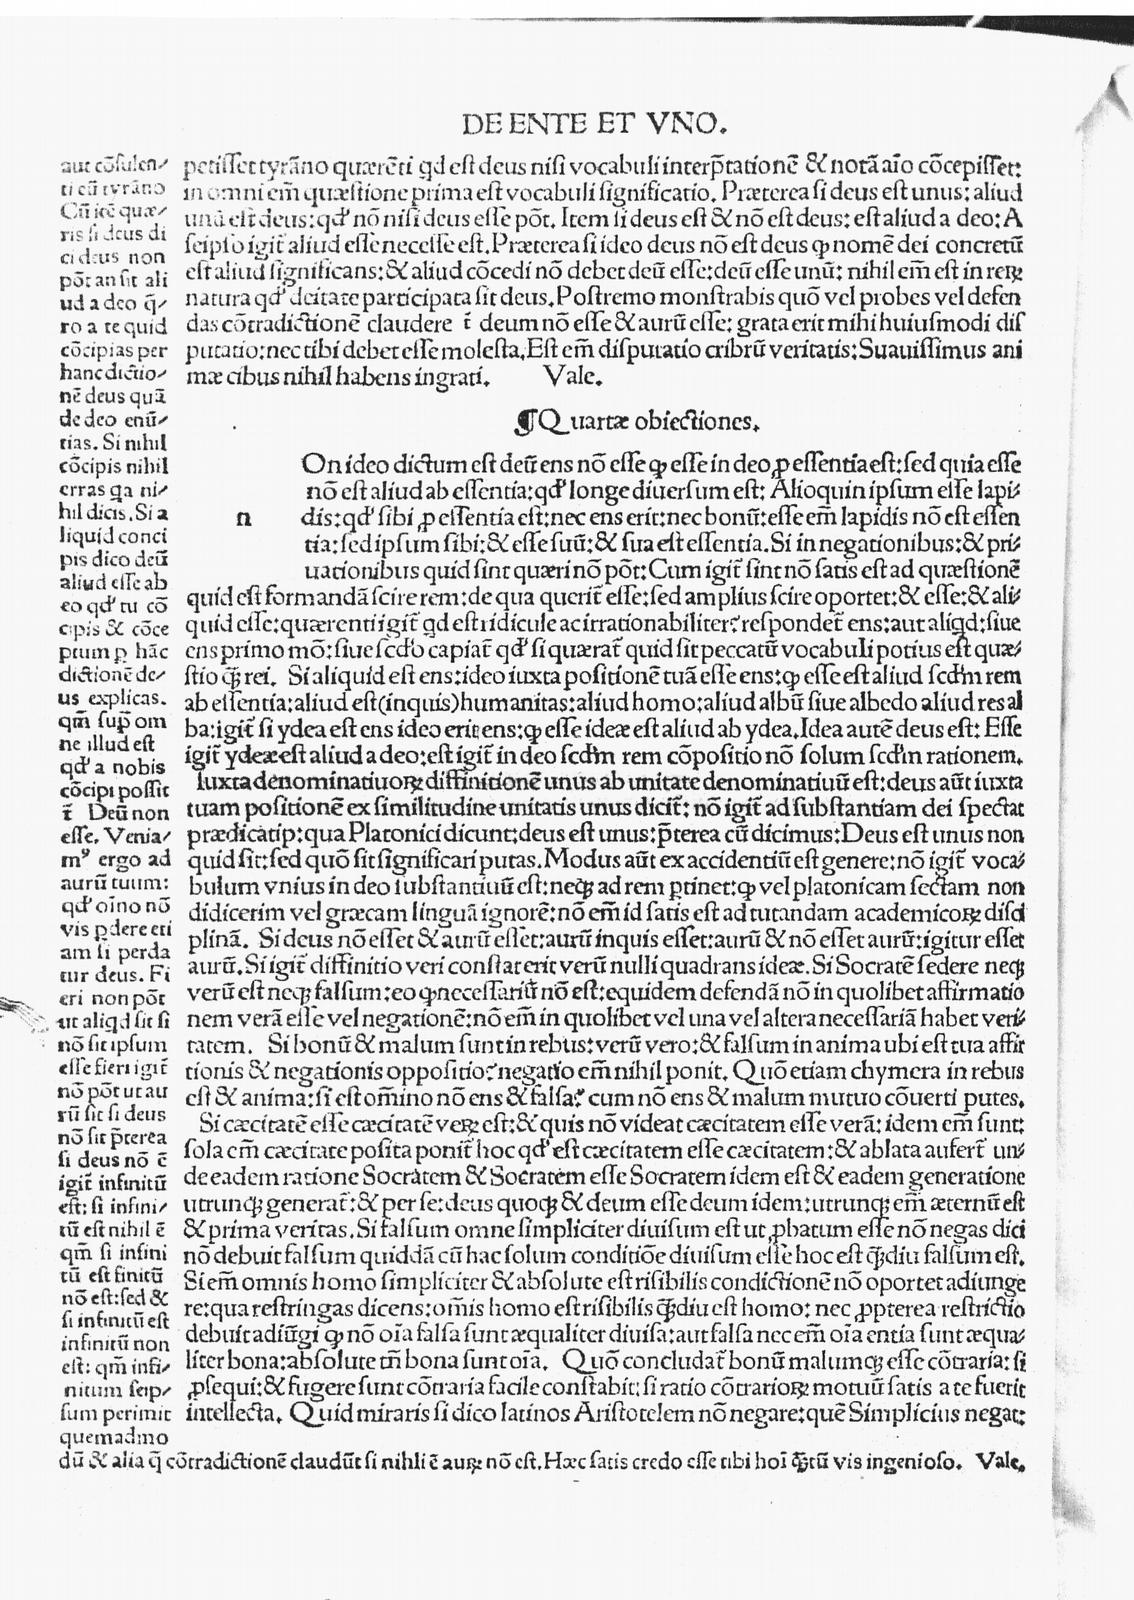 DE ENTE ET VNO.
petisset tyrãno quærẽti qd est deus nisi vocabuli interp̃tationẽ & notã aĩo cõcepisset:
in omni em̃ quæstione prima est vocabuli significatio. Præterea si deus est unus: aliud
unũ est deus: qd' nõ nisi deus esse põt. Item si deus est & nõ est deus: est aliud a deo: A
seipso igit̃ aliud esse necesse est. Præterea si ideo deus nõ est deus ꝙ nomẽ dei concretũ
est aliud significans: & aliud cõcedi nõ debet deũ esse: deũ esse unũ: nihil em̃ est in reꝝ
natura qd' deitate participata sit deus. Postremo monstrabis quõ vel probes vel defen
das cõtradictionẽ claudere t̃ deum nõ esse & aurũ esse: grata erit mihi huiusmodi dis
putatio: nec tibi debet esse molesta. Est em̃ disputatio cribrũ veritatis: Suauissimus ani
mæ cibus nihil habens ingrati. Vale.
¶Quartæ obiectiones.
On ideo dictum est deũ ens nõ esse ꝙ esse in deo ꝓ essentia est: sed quia esse
nõ est aliud ab essentia: qd' longe diuersum est: Alioquin ipsum esse lapi-
n dis: qd' sibi ꝓ essentia est: nec ens erit: nec bonũ: esse em̃ lapidis nõ est essen
tia: sed ipsum sibi: & esse suũ: & sua est essentia. Si in negationibus: & pri-
uationibus quid sint quæri nõ põt: Cum igit̃ sint nõ satis est ad quæstionẽ
quid est formandã scire rem: de qua querit̃ esse: sed amplius scire oportet: & esse: & ali-
quid esse: quærenti igit̃ qd est ridicule ac irrationabiliter: respondet̃ ens: aut aliqd: siue
ens primo mõ: siue scd'o capiat̃ qd' si quærat̃ quid sit peccatũ vocabuli potius est quæ-
stio ꝗ̃ rei. Si aliquid est ens: ideo iuxta positionẽ tuã esse ens: ꝙ esse est aliud scd'm rem
ab essentia: aliud est (inquis) humanitas: aliud homo: aliud albũ siue albedo aliud res al
ba: igit̃ si ydea est ens ideo erit ens: ꝙ esse ideæ est aliud ab ydea. Idea autẽ deus est: Esse
igit̃ ydeæ est aliud a deo: est igit̃ in deo scd'm rem cõpositio nõ solum scd'm rationem.
Iuxta denominatiuoꝝ diffinitionẽ unus ab unitate denominatiuũ est: deus aũt iuxta
tuam positionẽ ex similitudine unitatis unus dicit̃: nõ igit̃ ad substantiam dei spectat
prædicatip: qua Platonici dicunt: deus est unus: p̃terea cũ dicimus: Deus est unus non
quid sit: sed quõ sit significari putas. Modus aũt ex accidentiũ est genere: nõ igit̃ voca-
bulum vnius in deo substantiuũ est: neqꝫ ad rem ꝑtinet: ꝙ vel platonicam sectam non
didicerim vel græcam linguã ignorẽ: nõ em̃ id satis est ad tutandam academicoꝝ disci
plinã. Si deus nõ esset & aurũ esset: aurũ inquis esset: aurũ & nõ esset aurũ: igitur esset
aurũ. Si igit̃ diffinitio veri constat erit verũ nulli quadrans ideæ. Si Socratẽ sedere neqꝫ
verũ est neqꝫ falsum: eo ꝙ necessariũ nõ est: equidem defendã nõ in quolibet affirmatio
nem verã esse vel negationẽ: nõ em̃ in quolibet vel una vel altera necessariã habet veri-
tatem. Si bonũ & malum sunt in rebus: verũ vero: & falsum in anima ubi est tua affir
tionis & negationis oppositio: negatio em̃ nihil ponit. Quõ etiam chymera in rebus
est & anima: si est om̃ino nõ ens & falsa: cum nõ ens & malum mutuo cõuerti putes.
Si cæcitatẽ esse cæcitatẽ veꝝ est: & quis nõ videat cæcitatem esse verã: idem em̃ sunt:
sola em̃ cæcitate posita ponit̃ hoc qd' est cæcitatem esse cæcitatem: & ablata aufert̃ un-
de eadem ratione Socratem & Socratem esse Socratem idem est & eadem generatione
utrunqꝫ generat̃: & per se: deus quoqꝫ & deum esse deum idem: utrunqꝫ em̃ æternũ est
& prima veritas. Si falsum omne simpliciter diuisum est ut ꝓbatum esse nõ negas dici
nõ debuit falsum quiddã cũ hac solum conditiõe diuisum esse hoc est ꝗ̃diu falsum est.
Si em̃ omnis homo simpliciter & absolute est risibilis condictionẽ nõ oportet adiunge
re: qua restringas dicens: om̃is homo est risibilis ꝗ̃diu est homo: nec ꝓpterea restrictio
debuit adiũgi ꝙ nõ oĩa falsa sunt æqualiter diuisa: aut falsa nec em̃ oĩa entia sunt æqua-
liter bona: absolute tñ bona sunt oĩa. Quõ concludat̃ bonũ malumqꝫ esse cõtraria: si
ꝓsequi: & fugere sunt cõtraria facile constabit: si ratio cõtrarioꝝ motuũ satis a te fuerit
intellecta. Quid miraris si dico latinos Aristotelem nõ negare: quẽ Simplicius negat:
aut cõsulen-
ti cũ tyrãno
Cũ itẽ quæ-
ris si deus di
ci deus non
põt an sit ali
ud a deo q̃-
ro a te quid
cõcipias per
hanc dictio-
nẽ deus quã
de deo enũ-
tias. Si nihil
cõcipis nihil
erras qa ni-
hil dicis. Si a
liquid conci
pis dico deũ
aliud esse ab
eo qd' tu cõ
cipis & cõce
ptum ꝑ hãc
dictionẽ de-
us explicas.
qm̃ sup̃ om
ne illud est
qd' a nobis
cõcipi possit
t̃ Deũ non
esse. Venia-
mꝰ ergo ad
aurũ tuum:
qd' oĩno nõ
vis ꝑdere eti
am si perda
tur deus. Fi
eri non põt
ut aliqd sit si
nõ sit ipsum
esse fieri igit̃
nõ põt ut au
rũ sit si deus
nõ sit p̃terea
si deus nõ ẽ
igit̃ infinitũ
est: si infini-
tũ est nihil ẽ
qm̃ si infini
tũ est finitũ
nõ est: sed &
si infinitũ est
infinitũ non
est: qm̃ infi-
nitum seip-
sum perimit
quemadmo
dũ & alia q̃ cõtradictionẽ claudũt si nihli ẽ auꝝ nõ est. Hæc satis credo esse tibi hoĩ ꝗ̃tũ vis ingenioso. Vale.